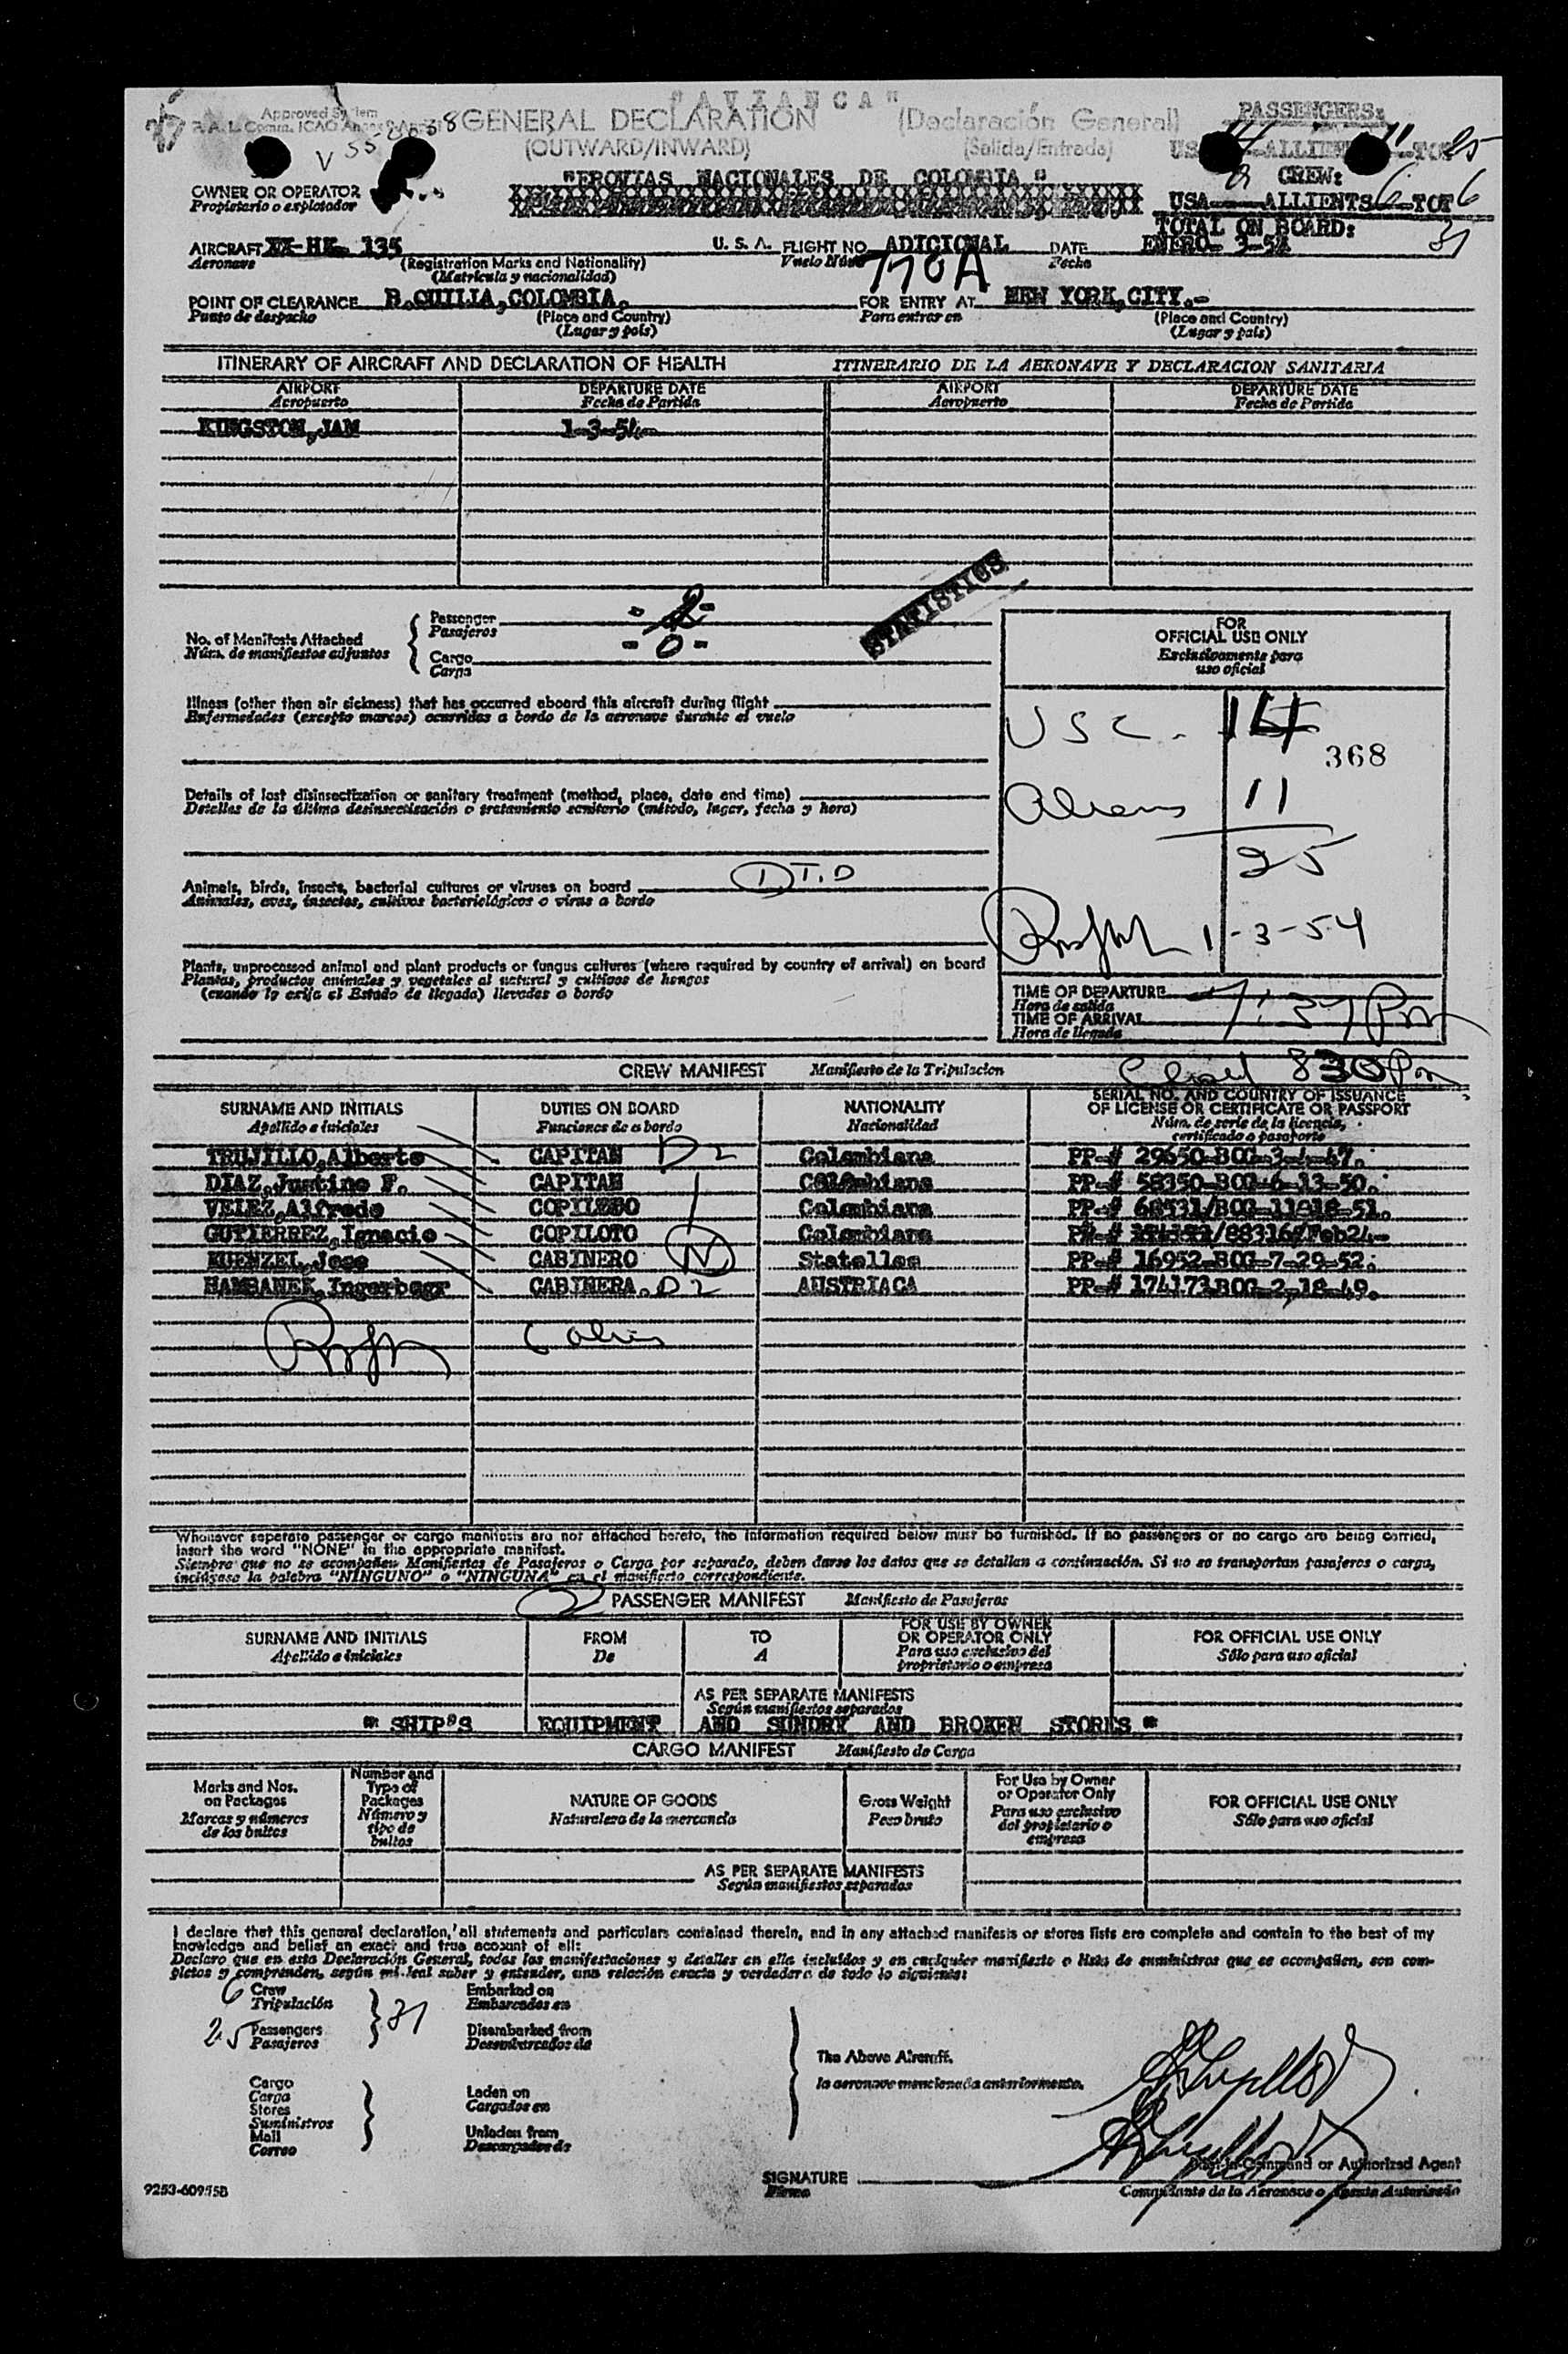 "AVIANCA"
Approved System
GENERAL DECLARATION (Declaración General)
(OUTWARD/INWARD) (Salida/Entrada)
PASSENGERS:
14 11 25
CREW:
USA ALLIENTS 6 TOT 6
TOTAL ON BOARD:
31
OWNER OR OPERATOR
Propietario o explotador
NACIONALES DE COLOMBIA"
AIRCRAFT HK- 135 U. S. A. FLIGHT NO. ADICIONAL DATE ENERO- 3-54
Aeronave (Registration Marks and Nationality) Vuelo Núm. 770A Fecha
(Matrícula y nacionalidad)
POINT OF CLEARANCE B.QUILIA,COLOMBIA. FOR ENTRY AT NEW YORK,CITY.-
Punto de despacho (Place and Country) Para entrar en (Place and Country)
(Lugar y país) (Lugar y país)
ITINERARY OF AIRCRAFT AND DECLARATION OF HEALTH ITINERARIO DE LA AERONAVE Y DECLARACION SANITARIA
AIRPORT DEPARTURE DATE AIRPORT DEPARTURE DATE
Aeropuerto Fecha de Partida Aeropuerto Fecha de Partida
KINGSTON,JAM 1-3-54-
STATISTICS
No. of Manifests Attached
Núm. de manifiestos adjuntos
Passenger - 2 -
Pasajeros
Cargo - 0 -
Carga
FOR
OFFICIAL USE ONLY
Exclusivamente para
uso oficial
Illness (other than air sickness) that has occurred aboard this aircraft during flight
Enfermedades (excepto mareos) ocurridas a bordo de la aeronave durante el vuelo
USC. 14
368
Details of last disinsectization or sanitary treatment (method, place, date and time)
Detalles de la última desinsectización o tratamiento sanitario (método, lugar, fecha y hora)
Aliens 11
25
Animals, birds, insects, bacterial cultures or viruses on board
Animales, aves, insectos, cultivos bacteriológicos o virus a bordo
1 T.D
1-3-54
Plants, unprocessed animal and plant products or fungus cultures (where required by country of arrival) on board
Plantas, productos animales y vegetales al natural y cultivos de hongos
(cuando lo exija el Estado de llegada) llevadas a bordo
TIME OF DEPARTURE
Hora de salida
TIME OF ARRIVAL 7:37 Pm
Hora de llegada
CREW MANIFEST Manifiesto de la Tripulacion
830 Pm
SURNAME AND INITIALS DUTIES ON BOARD NATIONALITY SERIAL NO. AND COUNTRY OF ISSUANCE
OF LICENSE OR CERTIFICATE OR PASSPORT
Apellido e iniciales Funciones de a bordo Nacionalidad Núm. de serie de la licencia,
certificado o pasaporte
TRUJILLO,Alberto CAPITAN D2 Colombiana PP-# 29650-BOG-3-4-47.
DIAZ,Justino F. CAPITAN Colombiana PP-# 58350-BOG-6-13-50.
VELEZ,Alfredo COPILOTO Colombiana PP-# 68531/BOG-11-18-51.
GUTIERREZ,Ignacio COPILOTO Colombiana
KUENZEL,Jose CABINERO N Statelles PP-# 16952-BOG-7-29-52.
HAMBANEK,Ingerborgr CABINERA. D2 AUSTRIACA PP-# 174173BOG-2-18-49.
Whenever separate passenger or cargo manifests are not attached hereto, the information required below must be furnished. If no passengers or no cargo are being carried,
insert the word "NONE" in the appropriate manifest.
Siempre que no se acompañen Manifiestos de Pasajeros o Carga por separado, deben darse los datos que se detallan a continuación. Si no se transportan pasajeros o carga,
inclúyase la palabra "NINGUNO" o "NINGUNA" en el manifiesto correspondiente.
2 PASSENGER MANIFEST Manifiesto de Pasajeros
SURNAME AND INITIALS FROM TO FOR USE BY OWNER
OR OPERATOR ONLY FOR OFFICIAL USE ONLY
Apellido e iniciales De A Para uso exclusivo del
proprietario o empresa Sólo para uso oficial
AS PER SEPARATE MANIFESTS
Según manifiestos separados
" SHIP'S EQUIPMENT AND SUNDRY AND BROKEN STORES "
CARGO MANIFEST Manifiesto de Carga
Marks and Nos.
on Packages
Marcas y números
de los bultos
Number and
Type of
Packages
Número y
tipo de
bultos
NATURE OF GOODS
Naturaleza de la mercancía
Gross Weight
Peso bruto
For Use by Owner
or Operator Only
Para uso exclusivo
del propietario o
empresa
FOR OFFICIAL USE ONLY
Sólo para uso oficial
AS PER SEPARATE MANIFESTS
Según manifiestos separados
I declare that this general declaration, all statements and particulars contained therein, and in any attached manifests or stores lists are complete and contain to the best of my
knowledge and belief an exact and true account of all:
Declaro que en esta Declaración General, todas las manifestaciones y detalles en ella incluidos y en cualquier manifiesto o lista de suministros que se acompañen, son com-
pletos y comprenden, según mi leal saber y entender, una relación exacta y verdadera de todo lo siguiente:
6 Crew
Tripulación
25 Passengers
Pasajeros
31
Embarked on
Embarcados en
Disembarked from
Desembarcados de
Cargo
Carga
Stores
Suministros
Mail
Correo
Laden on
Cargados en
Unladen from
Descargados de
The Above Aircraft.
la aeronave mencionada anteriormente.
SIGNATURE
Firma
Pilot-in-Command or Authorized Agent
Comandante de la Aeronave o Agente Autorizado
9253-60955B